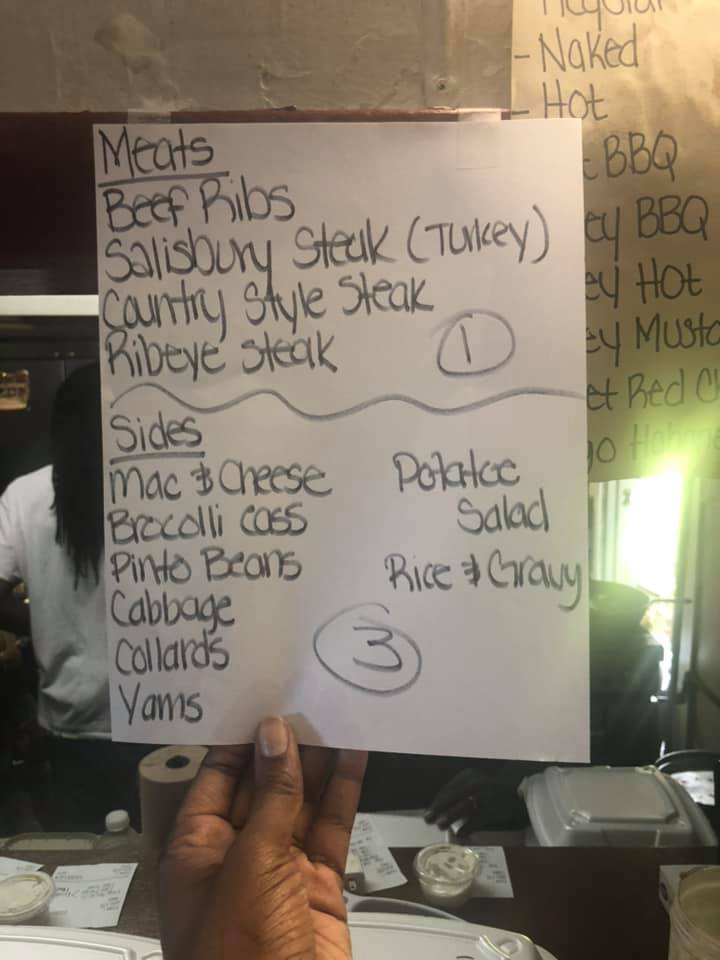 Meats
Beef Ribs
Salisbury Steak (Turkey)
Country Style Steak
Ribeye Steak
1
Sides
Mac & Cheese
Brocolli Cass
Pinto Beans
Cabbage
Collards
Yams
Potatoe
Salad
Rice & Gravy
3
- Naked
- Hot
BBQ
BBQ
Hot
Red